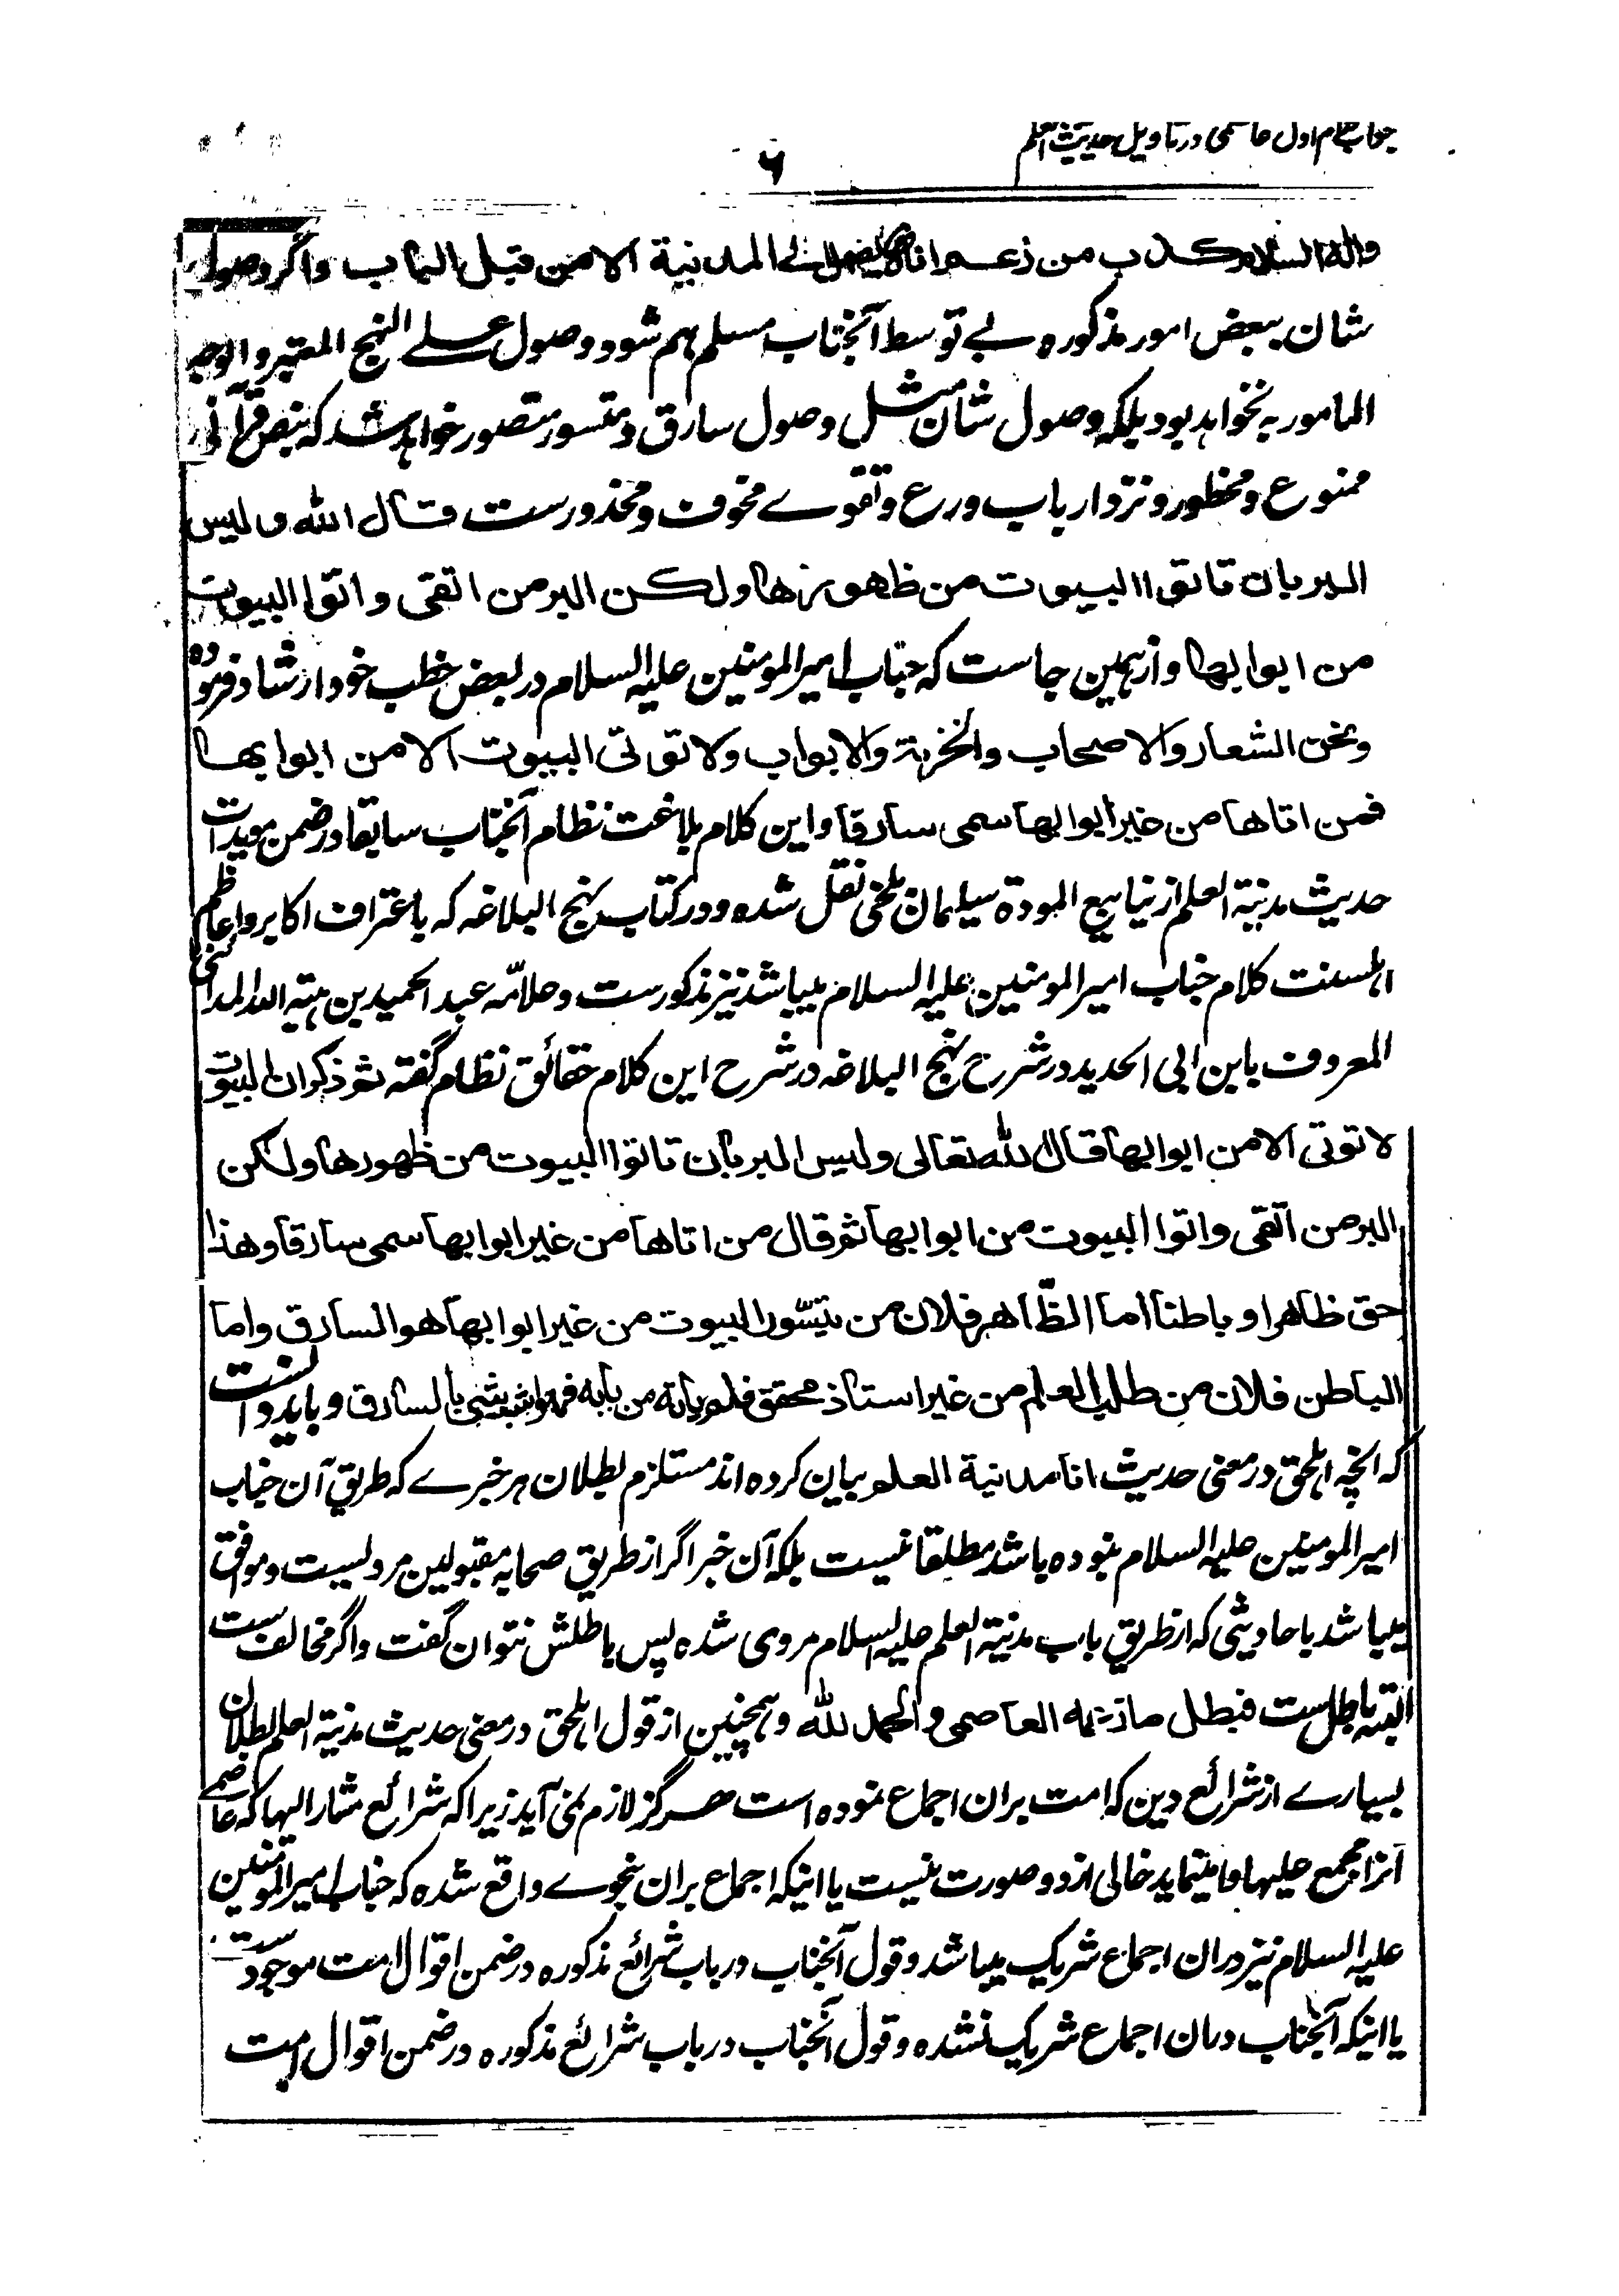 جواب کلام اول عاصمی در تاویل حدیث مدینة العلم
۶
واله السلام کذب من زعم انه یصل الی المدینة الا من قبل الباب و اگر وصول
شان ببعض امور مذکوره بے توسط آنجناب مسلم هم شود وصول علے النهج المعتبر والوجه
المامور به نخواهد بود بلکه وصول شان مثل وصول سارق و متسور متصور خواهد شد که بنص قرآنی
ممنوع و محظور و نزد ارباب ورع و تقوے مخوف و محذورست قال الله و لیس
البر بان تاتوا البیوت من ظهورها ولکن البر من اتقی و اتوا البیوت
من ابوابها و از همین جاست که جناب امیرالمومنین علیه السلام در بعض خطب خود ارشاد فرموده
ونحن الشعار والاصحاب والخزنة والابواب ولا توتی البیوت الا من ابوابها
فمن اتاها من غیر ابوابها سمی سارقا و این کلام بلاغت نظام آنجناب سابقا در ضمن مویدات
حدیث مدینة العلم از ینابیع المودة سلیمان بلخی نقل شده و در کتاب نهج البلاغه که باعتراف اکابر و اعاظم
اهلسنت کلام جناب امیرالمومنین علیه السلام میباشد نیز مذکورست و علامه عبد الحمید بن هبة الله المدائنی
المعروف بابن ابی الحدید در شرح نهج البلاغه در شرح این کلام حقائق نظام گفته ثم ذکر ان البیوت
لا توتی الا من ابوابها قال الله تعالی ولیس البر بان تاتوا البیوت من ظهورها ولکن
البر من اتقی واتوا البیوت من ابوابها ثم قال من اتاها من غیر ابوابها سمی سارقا وهذا
حق ظاهرا و باطنا اما الظّاهر فلان من یتسّور البیوت من غیر ابوابها هو السارق واما
الباطن فلان من طلب العلم من غیر استاذ محقق فلم یاته من بابه فهو اشبه شیٔ بالسارق و باید دانست
که آنچه اهلحق در معنی حدیث انا مدینة العلم بیان کرده اند مستلزم بطلان هر خبرے که طریق آن جناب
امیرالمومنین علیه السلام نبوده باشد مطلقا نیست بلکه آن خبر اگر از طریق صحابه مقبولین مرویست و موافق
میباشد باحادیثی که از طریق باب مدینة العلم علیه السلام مروی شده پس باطلش نتوان گفت و اگر مخالف ست
البته باطل ست فبطل ما زعمه العاصمی والحمد لله و همچنین از قول اهلحق در معنی حدیث مدینة العلم بطلان
بسیارے از شرائع دین که امت بران اجماع نموده است هرگز لازم نمی آید زیرا که شرائع مشار الیها که عاصمے
آنرا مجمع علیها وا مینماید خالی از دو صورت نیست یا اینکه اجماع بران بنحوے واقع شده که جناب امیرالمومنین
علیه السلام نیز دران اجماع شریک میباشد و قول آنجناب در باب شرائع مذکوره در ضمن اقوال امت موجودست
یا اینکه آنجناب دران اجماع شریک نشده و قول آنجناب در باب شرائع مذکوره در ضمن اقوال امت